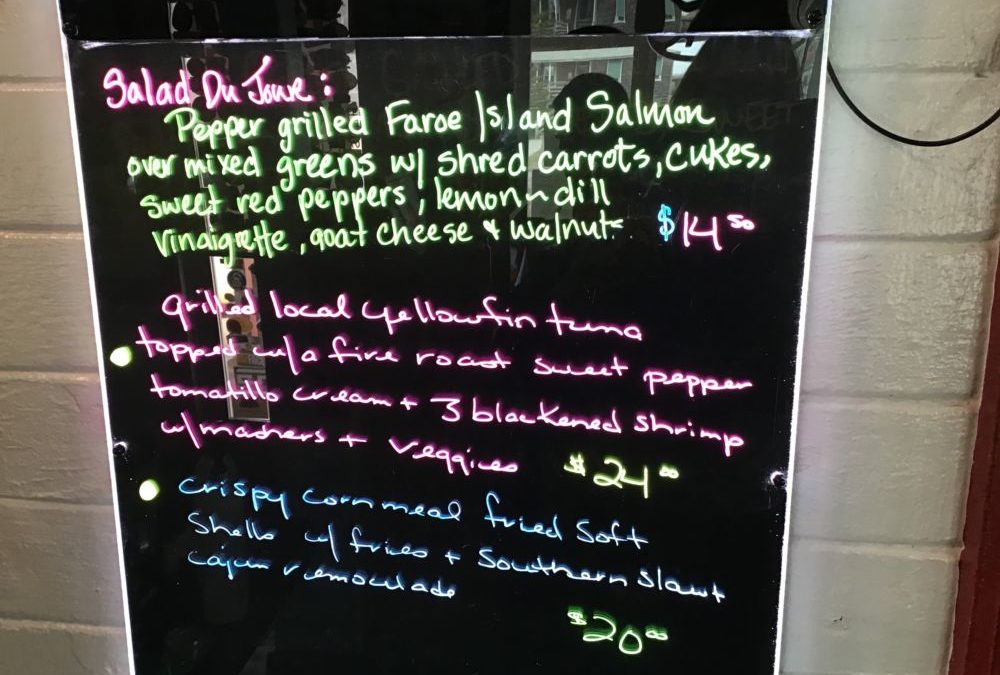 Salad Du Jour:
Pepper grilled Faroe Island Salmon
over mixed greens w/ shred carrots, cukes,
sweet red peppers, lemon-dill
vinaigrette, goat cheese & walnuts. $14 50
grilled local yellowfin tuna
• topped w/a fire roast sweet pepper
tomatillo cream + 3 blackened shrimp
w/mashers + veggies $24 00
• crispy cornmeal fried soft
shells w/ fries + southern slaw +
cajun remoulade
$20 00